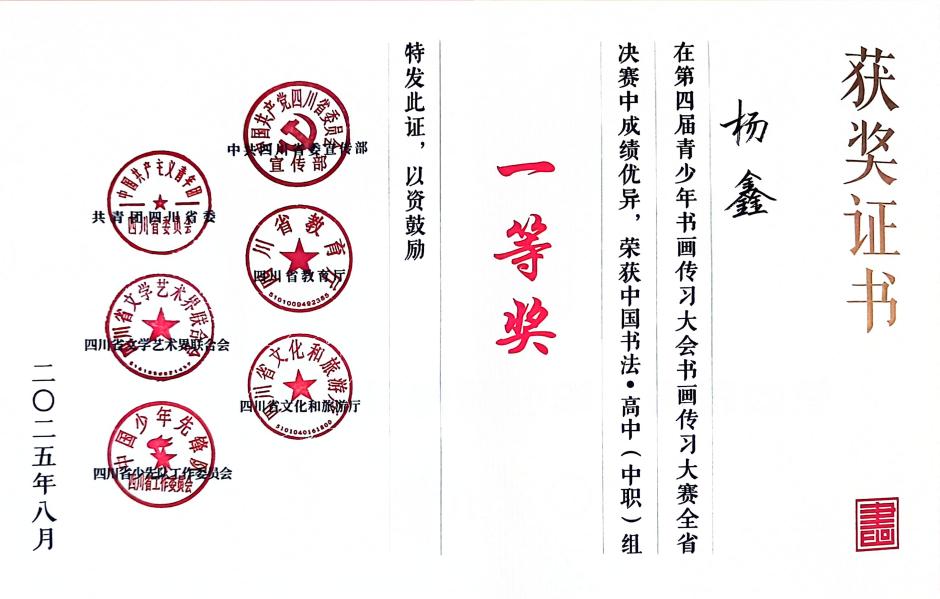 获奖证书
杨鑫
在第四届青少年书画传习大会书画传习大赛全省
决赛中成绩优异，荣获中国书法·高中（中职）组
一等奖
特发此证，以资鼓励
中国共产党四川省委员会
宣传部
中共四川省委宣传部
四川省教育厅
四川省教育厅
5101009492385
四川省文化和旅游厅
四川省文化和旅游厅
5101040161800
中国共产主义青年团
四川省委员会
共青团四川省委
四川省文学艺术界联合会
四川省文学艺术界联合会
中国少年先锋队
四川省工作委员会
四川省少先队工作委员会
二〇二五年八月